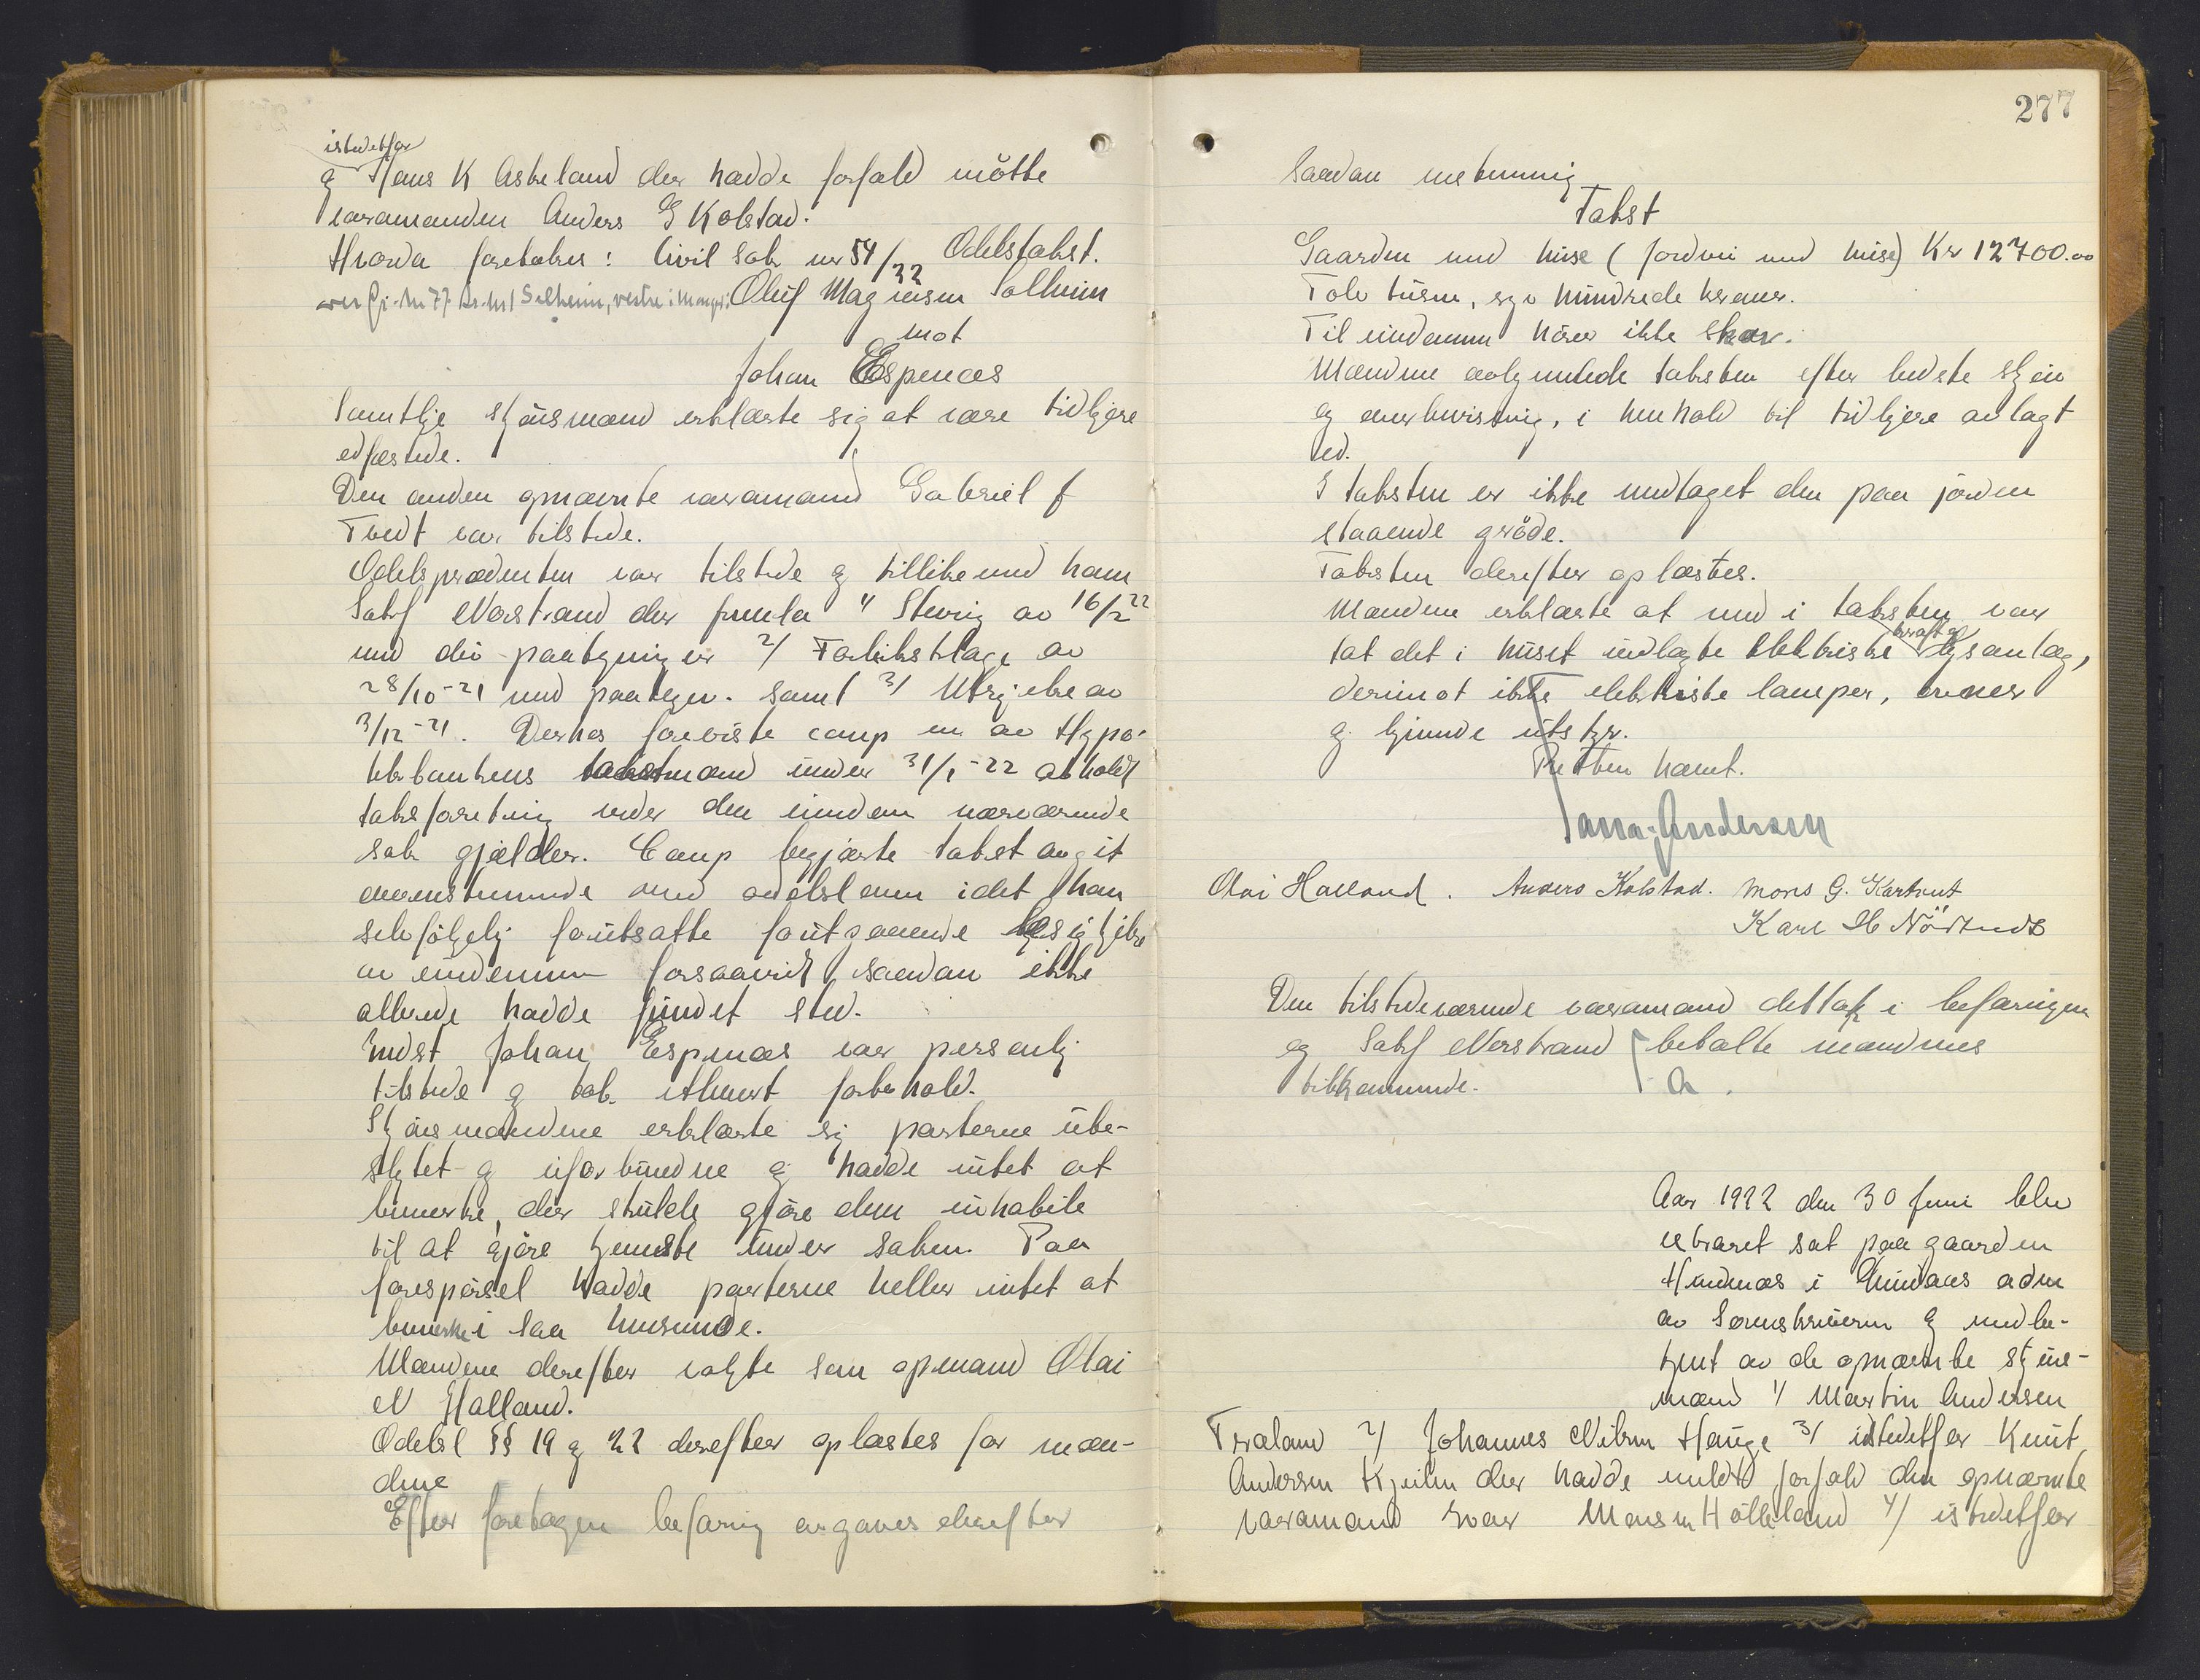 istedetfor
g Hans K Askeland der hadde forfald mötte
varamanden Anders G Kolstad.
Hvorda foretakes: Civil Sak nr 54/22 Odelstakst.
over Gr. nr 77 br. nr 1 Solheim, vestre i Manger: Oluf Magnesen Solheim
mot
Johan Espenæs
Samtlige skjönsmænd erklærte sig at være tidligere
edfæstede.
Den anden opnævnte varamand Gabriel J
Tvedt var tilstede.
Odelsprædenten var tilstede g tillike med ham
Sakf Nerstrand der fremla 1/ Stevning av 16/2 22
med div paategninger 2/ Forliksklage av
28/10-21 med paategn. samt 3/ Utskrift av
3/12-21. Dernæs foreviste comp en av Hypo-
tekbankens takstmænd under 31/1-22 avholdt
takstforretning over den eiendom nærværende
sak gjælder. Comp begjærte takst avgit
overensstemmende med odelsloven idet han
selvfölgelig forutsatte forutgaaende besigtigelse
av eiendommen forsaavidt saadan ikke
allerede hadde fundet sted.
Indst Johan Espenæs var personlig
tilstede g tok ethvert forbehold.
Skjönsmændene erklærte sig parterne ube-
slegtet g uforbundne g hadde intet at
bemerke, der skulde gjöre dem inhabile
til at gjöre tjeneste under saken. Paa
forespörsel hadde parterne heller intet at
bemerke i saa henseende.
Mændene derefter valgte som opmand Olai
N Halland.
Odelsl §§ 19 g 22 derefter oplæstes for mæn-
dene
Efter foretagen befaring avgaves derefter
277
Saadan nebenning
Takst
Gaarden med huse (jordvei med huse) Kr 12700.00
Tolv tusen, syv hundrede kroner.
Til eiendommen hörer ikke skov.
Mændene avhjemlede taksten efter bedste skjön
og overbevisning, i henhold til tidligere avlagt
ed.
I taksten er ikke medtaget den paa jorden
staaende gröde.
Taksten derefter oplæstes.
Mændene erklærte at med i taksten var
kraft g
tat det i huset indlagte elektriske lysanlæg,
derimot ikke elektriske lamper, ovner
g lignende utstyr.
Retten hævet.
Andersen
Olai Halland. Anders Kolstad. Mons G. Kartveit
Karl H Nörtvedt
Den tilstedeværende varamand deltok i befaringen
og Sakf Nerstrand betalte mændenes
tilkommende. A.
Aar 1922 den 30 Juni blev
ekstraret sat paa gaarden
Hundnæs i Lindaas adm
av Sorenskriveren g medbe-
tjent av de opnævnte skjöns-
mænd 1/ Martin Andersen
Fræland 2/ Johannes Nilsen Hauge 3/ istedetfor Knut
Andersen Kjeilen der hadde meldt forfald den opnævnte
varamand Ivar Monsen Hölleland 4/ istedetfor